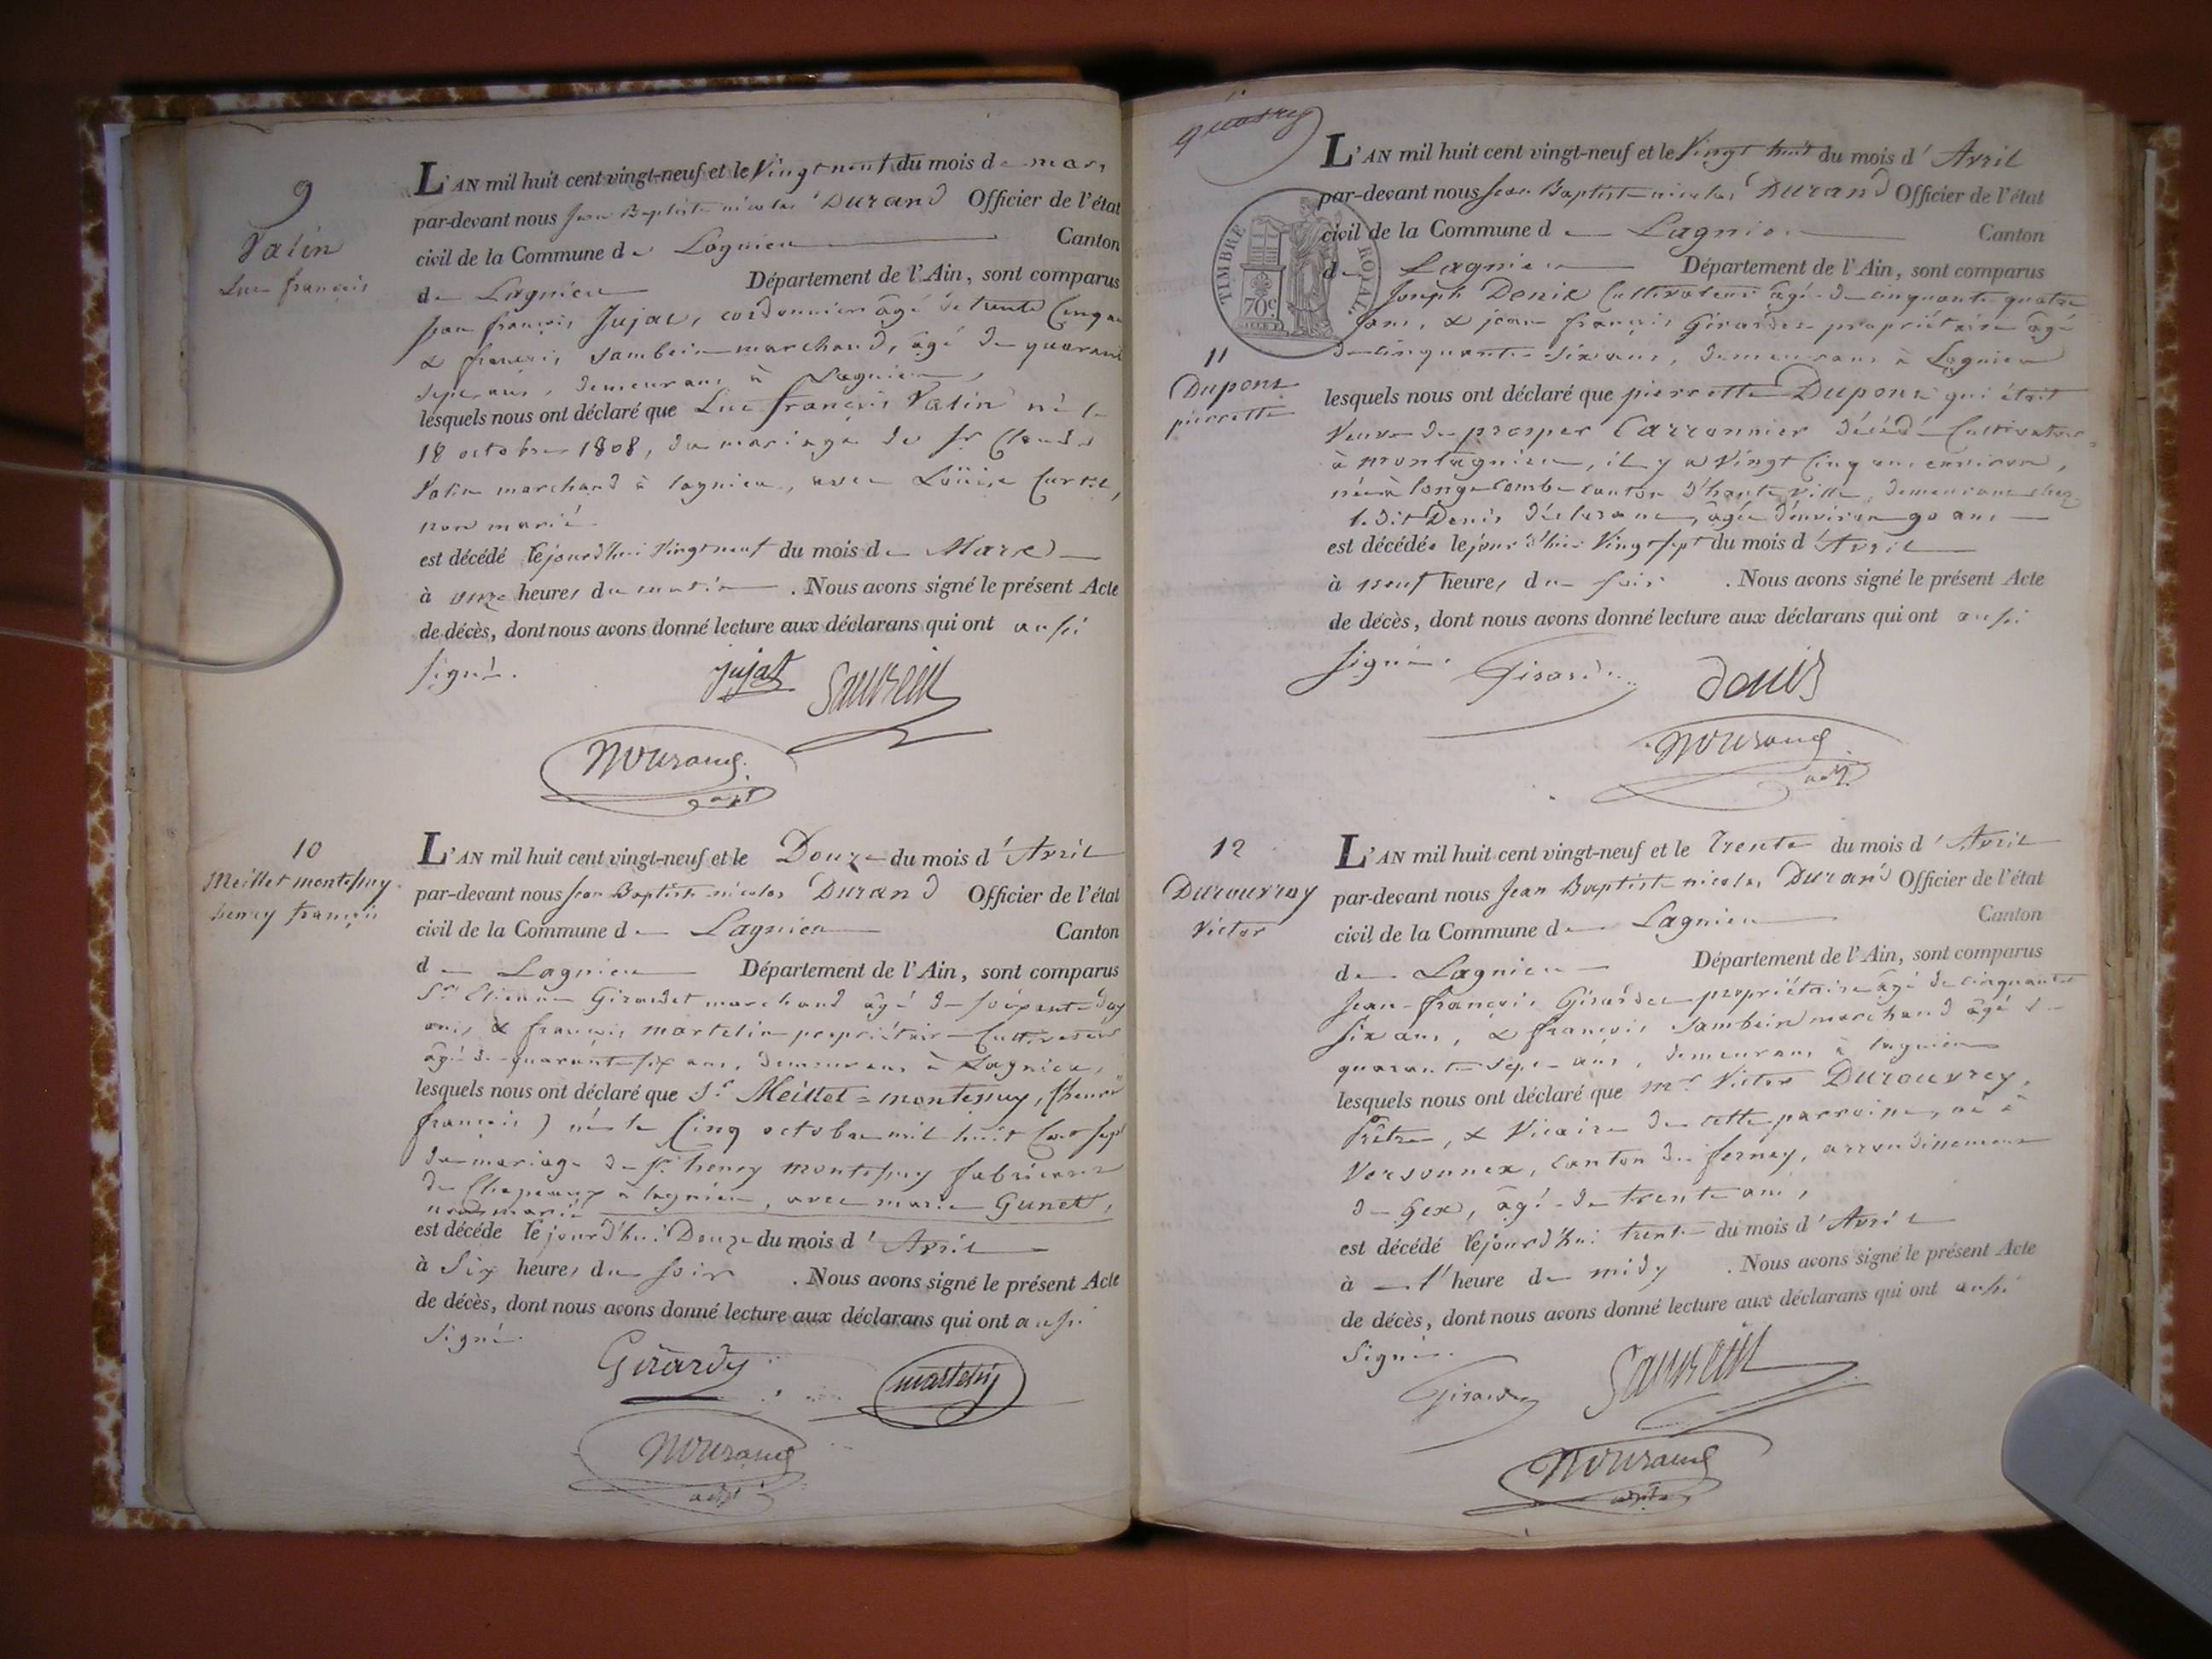 9
Valin
Luc françois
L'AN mil huit cent vingt-neuf et le Vingt neuf du mois de mars
par-devant nous Jean Baptiste nicolas Durand Officier de l'état
civil de la Commune de Lagnieu Canton
de Lagnieu Département de l'Ain, sont comparus
jean françois Jujat, cordonnier âgé de trente Cinq ans
& françois sambein marchand, âgé de quarante
sept ans, demeurans à Lagnieu,
lesquels nous ont déclaré que Luc françois Valin né le
18 octobre 1808, du mariage de Sr Claude
Valin marchand à lagnieu, avec Loüise
non marié
est décédé le jourd'hui Vingt neuf du mois de Mars
à onze heures du matin. Nous avons signé le présent Acte
de décès, dont nous avons donné lecture aux déclarans qui ont aussi
signé.
jujat
NDurand
adjt
10
Meillet montessuy
henry françois
L'AN mil huit cent vingt-neuf et le Douze du mois d'Avril
par-devant nous Jean Baptiste nicolas Durand Officier de l'état
civil de la Commune de Lagnieu Canton
de Lagnieu Département de l'Ain, sont comparus
Sr Etienne Girardet marchand âgé de soixante dix
ans, & françois martelin propriétaire Cultivateur
âgé de quarante six ans, demeurans à Lagnieu,
lesquels nous ont déclaré que Sr Meillet = montessuy, (henri
françois) né le Cinq octobre mil huit Cent sept
du mariage de Sr henry montessuy fabricant
de Chapeaux à lagnieu, avec marie Gunet,
non marié
est décédé le jourd'hui Douze du mois d'Avril
à Six heures du soir. Nous avons signé le présent Acte
de décès, dont nous avons donné lecture aux déclarans qui ont aussi
Signé.
martelin
NDurand
adjt
L'AN mil huit cent vingt-neuf et le Vingt huit du mois d'Avril
par-devant nous Jean Baptiste nicolas Durand Officier de l'état
civil de la Commune de Lagnieu Canton
de Lagnieu Département de l'Ain, sont comparus
TIMBRE ROYAL
70c.
Joseph Denis Cultivateur âgé de cinquante quatre
ans, & jean françois Girardet propriétaire âgé
de cinquante sixans, demeurans à Lagnieu
11
Dupont
pierrette
lesquels nous ont déclaré que pierrette Dupont qui était
Veuve de prosper Carronnier décédé Cultivateur
à montagnieu, il y a Vingt Cinq ans environ,
née à longecombe canton d'hauteville, demeurant chez
le dit Denis déclarant, âgée d'environ 90 ans
est décédée le jour d'hier Vingt sept du mois d'Avril
à neuf heures du soir. Nous avons signé le présent Acte
de décès, dont nous avons donné lecture aux déclarans qui ont aussi
signé.
Denis
NDurand
adjt
12
Durouvray
Victor
L'AN mil huit cent vingt-neuf et le Trente du mois d'Avril
par-devant nous Jean Baptiste nicolas Durand Officier de l'état
civil de la Commune de Lagnieu Canton
de Lagnieu Département de l'Ain, sont comparus
Jean-françois Girardet propriétaire âgé de cinquante
six ans, & françois sambein marchand âgé de
quarante sept ans, demeurans à lagnieu
lesquels nous ont déclaré que mr Victor Durouvrey,
Prêtre, & Vicaire de cette parroisse, né à
Versonnex, canton de ferney, arrondissement
de Gex, âgé de trente ans,
est décédé le jourd'hui trente du mois d'Avril
à l'heure de midy. Nous avons signé le présent Acte
de décès, dont nous avons donné lecture aux déclarans qui ont aussi
Signé.
NDurand
adjt